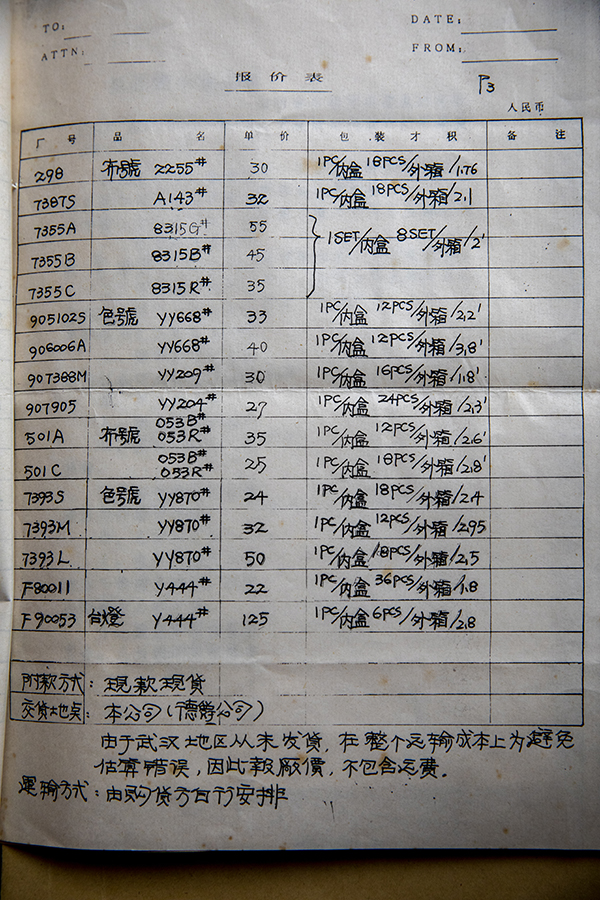 TO:
DATE:
ATTN:
FROM:
报价表
P3
人民币
厂号 品名 单价 包装才积 备注
298 布号號 2255# 30 1PC/内盒 18PCS/外箱/1.76
7387S A143# 32 1PC/内盒 18PCS/外箱/2.1
7355A 8315G# 55
7355B 8315B# 45 1SET/内盒 8SET/外箱/2'
7355C 8315R# 35
905102S 色号號 YY668# 33 1PC/内盒 12PCS/外箱/2.2'
906006A YY668# 40 1PC/内盒 12PCS/外箱/3.8'
907388M YY209# 30 1PC/内盒 16PCS/外箱/1.8'
907905 YY204# 27 1PC/内盒 24PCS/外箱/2.3'
501A 布号號 053B# 053R# 35 1PC/内盒 12PCS/外箱/2.6'
501C 053B# 053R# 25 1PC/内盒 18PCS/外箱/2.8'
7393S 色号號 YY870# 24 1PC/内盒 18PCS/外箱/2.4
7393M YY870# 32 1PC/内盒 12PCS/外箱/2.95
7393L YY870# 50 1PC/内盒 18PCS/外箱/2.5
F80011 Y444# 22 1PC/内盒 36PCS/外箱/1.8
F90053 台燈 Y444# 125 1PC/内盒 6PCS/外箱/2.8
附款方式：现款现货
交货地点：本公司(德爵公司)
由于武汉地区从未发货，在整个运输成本上为避免
估算错误，因此報廠價，不包含运费。
運输方式：由购货方自行安排